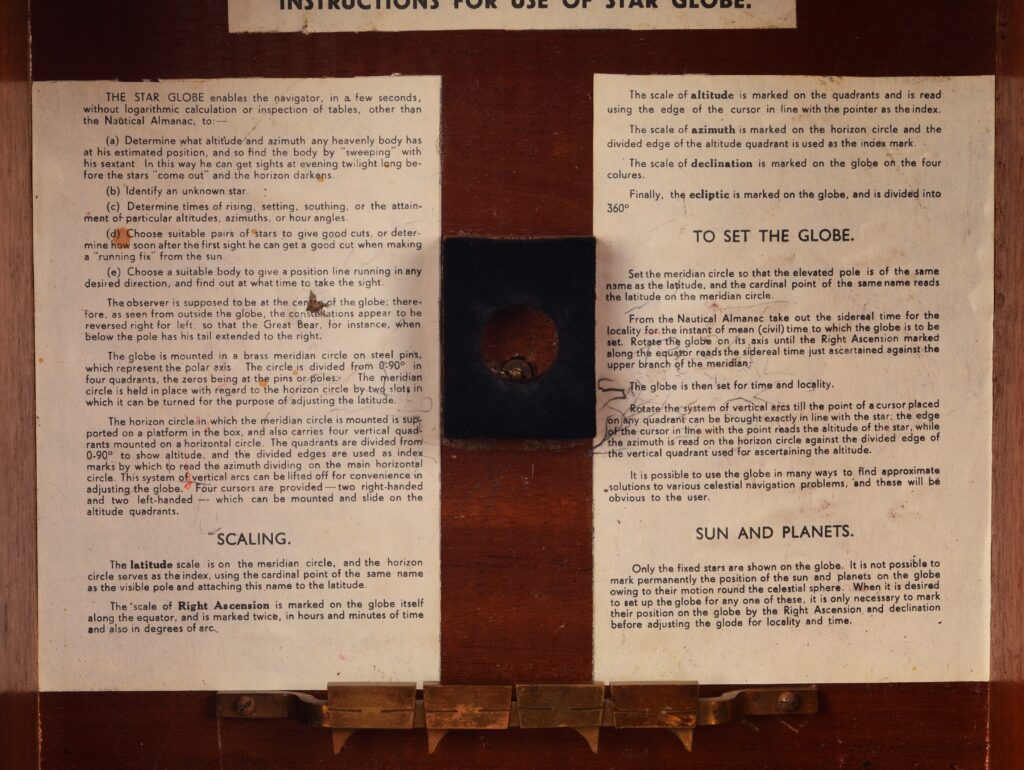 INSTRUCTIONS FOR USE OF STAR GLOBE.
THE STAR GLOBE enables the navigator, in a few seconds,
without logarithmic calculation or inspection of tables, other than
the Nautical Almanac, to:—
(a) Determine what altitude and azimuth any heavenly body has
at his estimated position, and so find the body by "sweeping" with
his sextant. In this way he can get sights at evening twilight long be-
fore the stars "come out" and the horizon darkens.
(b) Identify an unknown star.
(c) Determine times of rising, setting, southing, or the attain-
ment of particular altitudes, azimuths, or hour angles.
(d) Choose suitable pairs of stars to give good cuts, or deter-
mine how soon after the first sight he can get a good cut when making
a "running fix" from the sun.
(e) Choose a suitable body to give a position line running in any
desired direction, and find out at what time to take the sight.
The observer is supposed to be at the centre of the globe; there-
fore, as seen from outside the globe, the constellations appear to be
reversed right for left, so that the Great Bear, for instance, when
below the pole has his tail extended to the right.
The globe is mounted in a brass meridian circle on steel pins,
which represent the polar axis. The circle is divided from 0-90° in
four quadrants, the zeros being at the pins or poles. The meridian
circle is held in place with regard to the horizon circle by two slots in
which it can be turned for the purpose of adjusting the latitude.
The horizon circle in which the meridian circle is mounted is sup-
ported on a platform in the box, and also carries four vertical quad-
rants mounted on a horizontal circle. The quadrants are divided from
0-90° to show altitude, and the divided edges are used as index
marks by which to read the azimuth dividing on the main horizontal
circle. This system of vertical arcs can be lifted off for convenience in
adjusting the globe. Four cursors are provided — two right-handed
and two left-handed — which can be mounted and slide on the
altitude quadrants.
SCALING.
The latitude scale is on the meridian circle, and the horizon
circle serves as the index, using the cardinal point of the same name
as the visible pole and attaching this name to the latitude.
The scale of Right Ascension is marked on the globe itself
along the equator, and is marked twice, in hours and minutes of time
and also in degrees of arc.
The scale of altitude is marked on the quadrants and is read
using the edge of the cursor in line with the pointer as the index.
The scale of azimuth is marked on the horizon circle and the
divided edge of the altitude quadrant is used as the index mark.
The scale of declination is marked on the globe on the four
colures.
Finally, the ecliptic is marked on the globe, and is divided into
360°
TO SET THE GLOBE.
Set the meridian circle so that the elevated pole is of the same
name as the latitude, and the cardinal point of the same name reads
the latitude on the meridian circle.
From the Nautical Almanac take out the sidereal time for the
locality for the instant of mean (civil) time to which the globe is to be
set. Rotate the globe on its axis until the Right Ascension marked
along the equator reads the sidereal time just ascertained against the
upper branch of the meridian.
The globe is then set for time and locality.
Rotate the system of vertical arcs till the point of a cursor placed
on any quadrant can be brought exactly in line with the star; the edge
of the cursor in line with the point reads the altitude of the star, while
the azimuth is read on the horizon circle against the divided edge of
the vertical quadrant used for ascertaining the altitude.
It is possible to use the globe in many ways to find approximate
solutions to various celestial navigation problems, and these will be
obvious to the user.
SUN AND PLANETS.
Only the fixed stars are shown on the globe. It is not possible to
mark permanently the position of the sun and planets on the globe
owing to their motion round the celestial sphere. When it is desired
to set up the globe for any one of these, it is only necessary to mark
their position on the globe by the Right Ascension and declination
before adjusting the glode for locality and time.